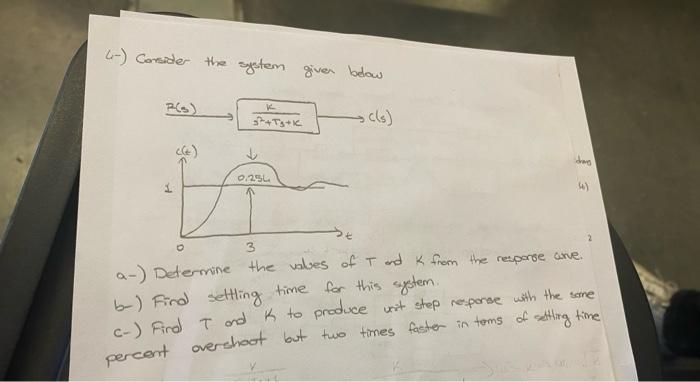 4-) Consider the system given below
R(s)
K
s²+Ts+K
C(s)
c(t)
0.254
1
0
3
t
a-) Determine the values of T and K from the response curve.
b-) Find settling time for this system.
c-) Find T and K to produce unit step response with the same
percent overshoot but two times faster in terms of settling time
4)
2